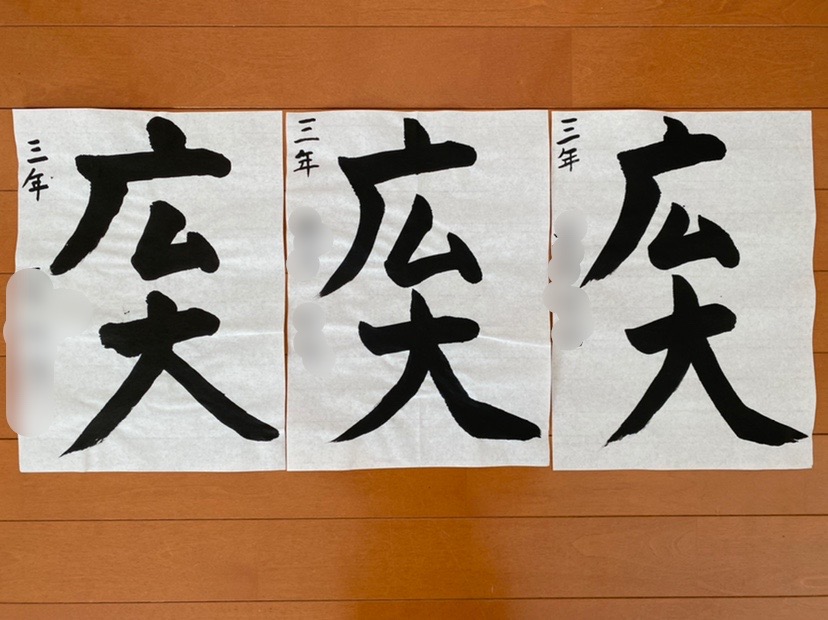 広大
三年
広大
三年
広大
三年